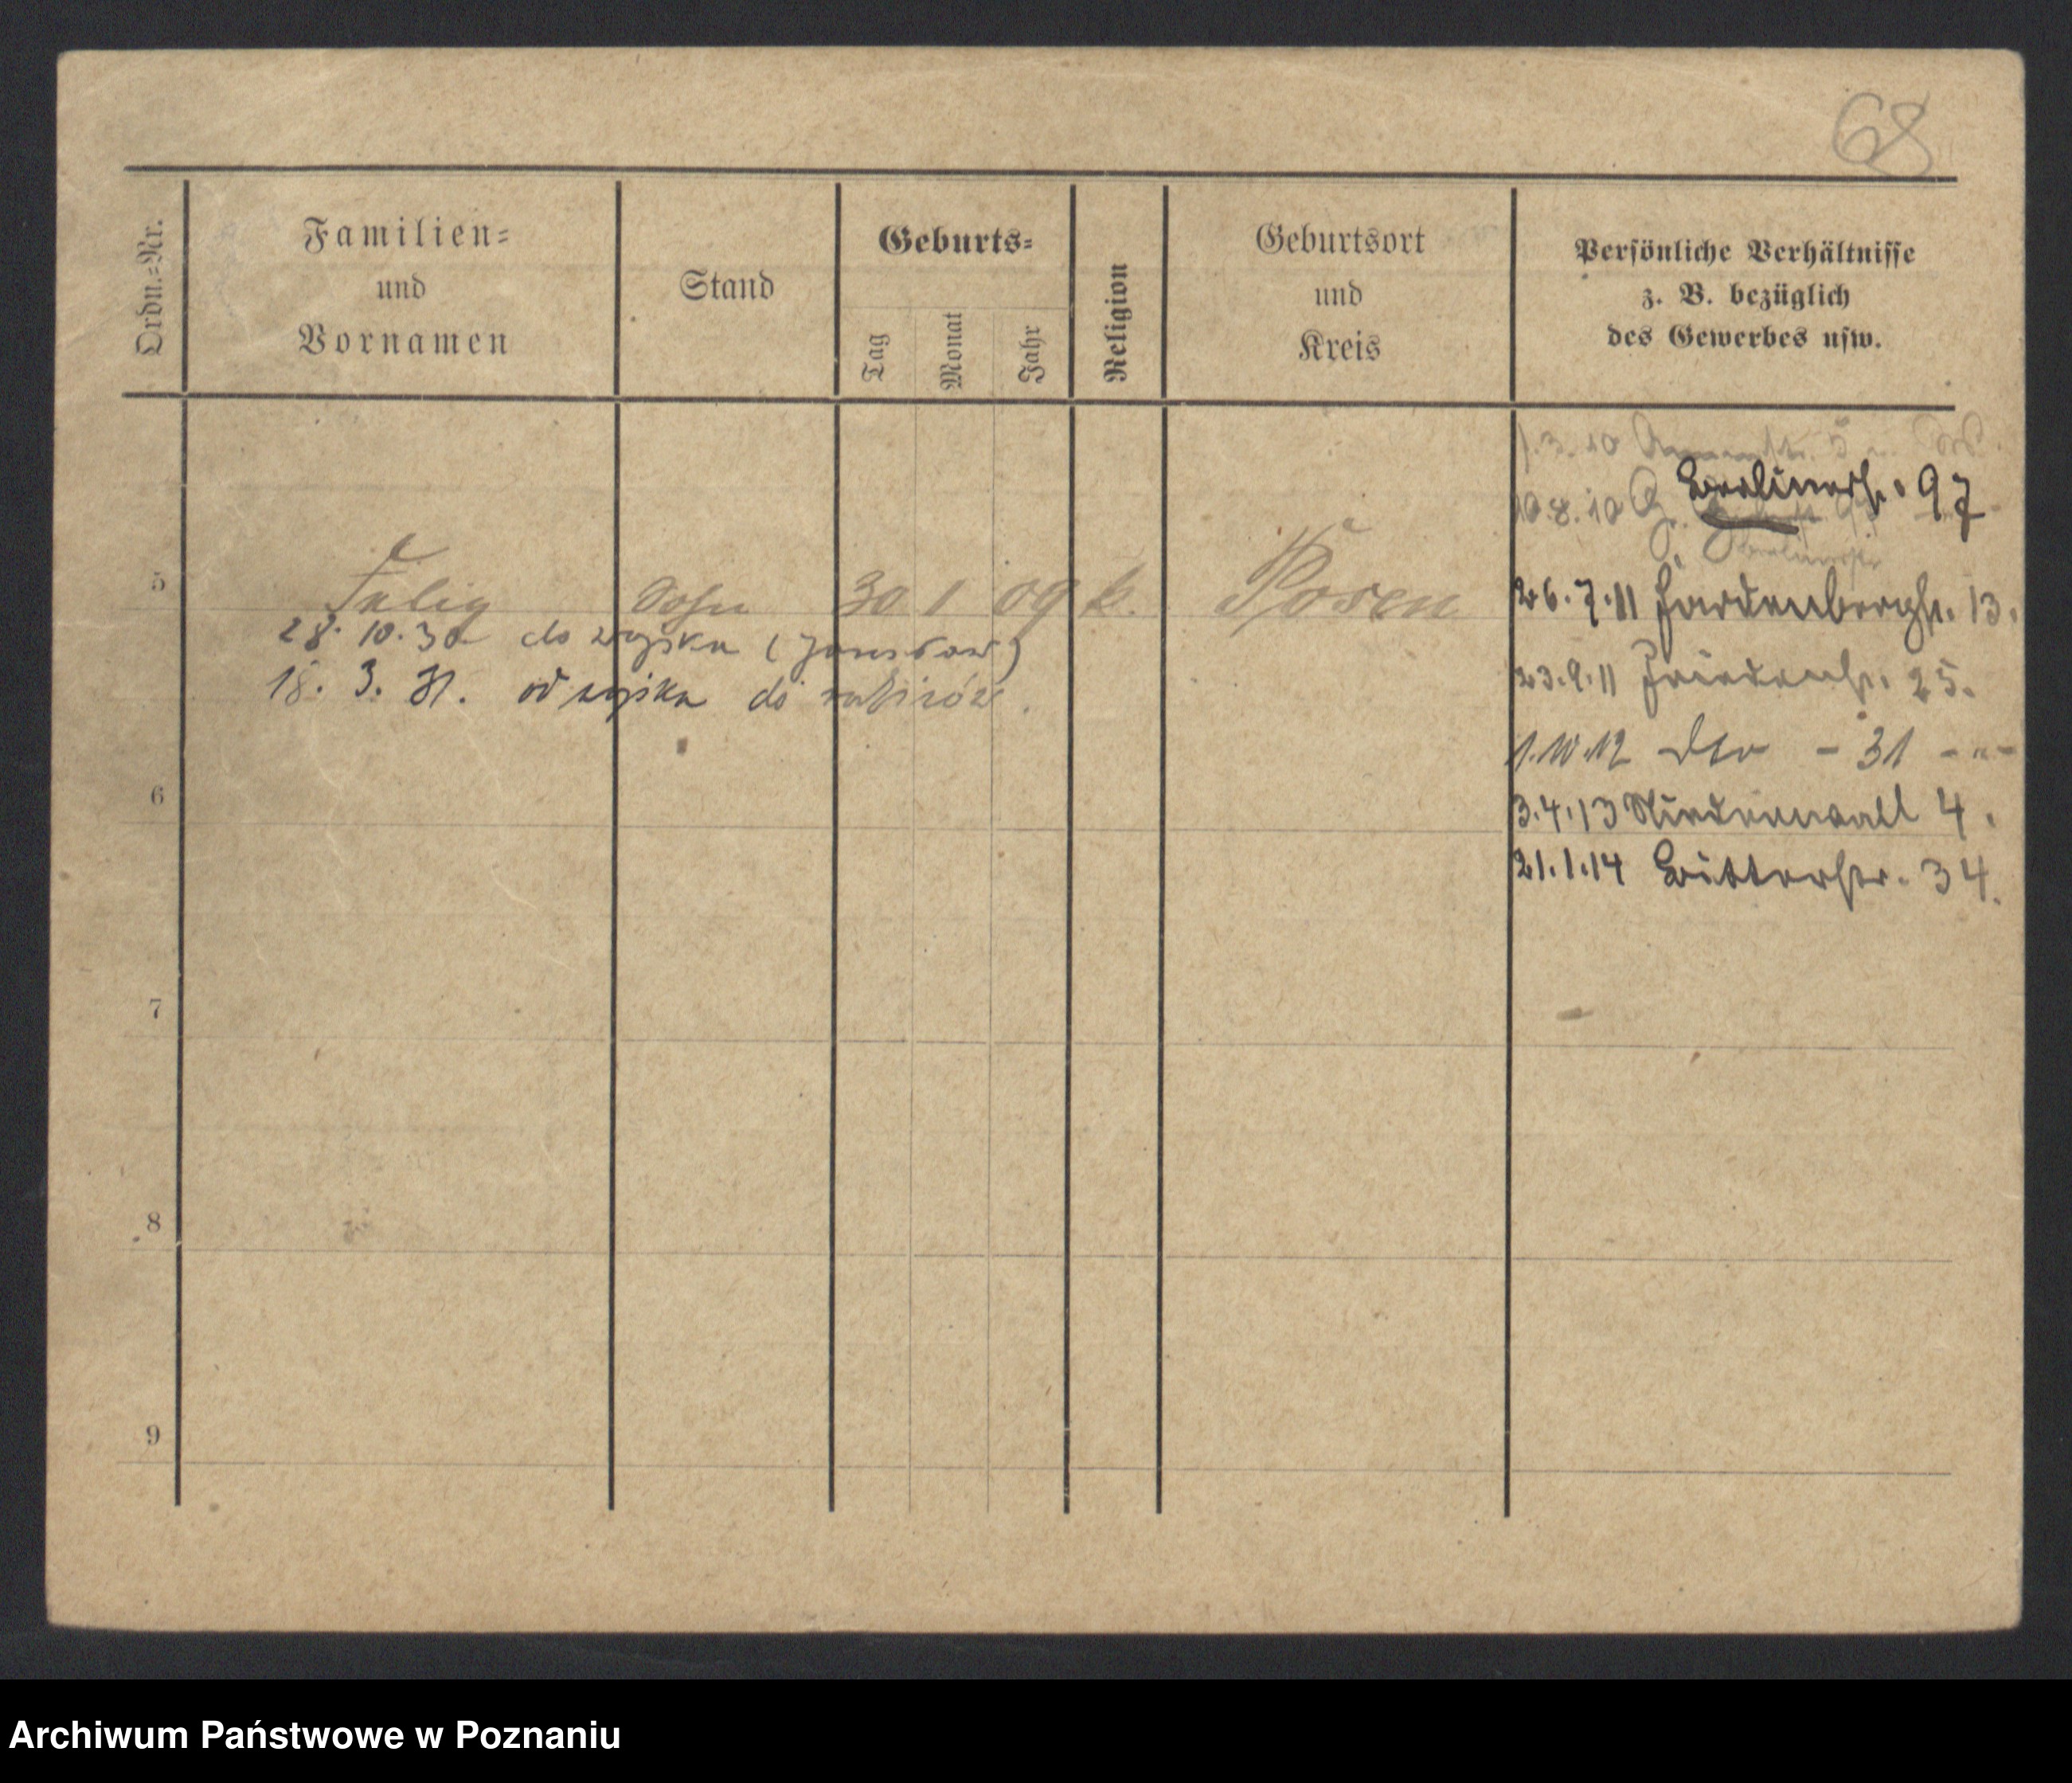 68
Ordn.=Nr.
Familien=
und
Vornamen
Stand
Geburts=
Tag
Monat
Jahr
Religion
Geburtsort
und
Kreis
Persönliche Verhältnisse
z. B. bezüglich
des Gewerbes usw.
1.3.10
10.8.10 Berlinerstr. 97
Berlinerstr
5 Sohn 30 1 09 k. Posen
26.7.11 Hardenbergstr. 13.
28. 10. 30 do wojska
18. 3. 31. od wojska do
23.9.11 Friedenstr. 25.
1.10.12 Dto - 31 - " -
6
3.4.13 Niederwall 4.
21.1.14 Bitterstr. 34.
7
8
9
Archiwum Państwowe w Poznaniu